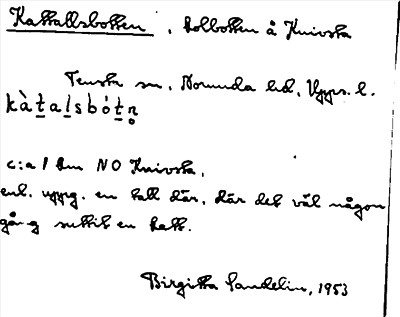 Kattallsbotten, kolbotten å Knivsta
Tensta sn, Norunda hd, Upps. l.
kàt̲al̲sbót̲n̥
c:a 1 km NO Knivsta,
enl. uppg. en tall där, där det väl någon
gång suttit en katt.
Birgitta Sandelin, 1953